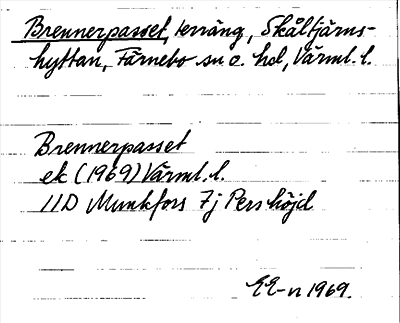 Brennerpasset, terräng, Skåltjärns-
hyttan, Färnebo sn o. hd, Värml. l.
Brennerpasset
ek (1969) Värml. l.
11D Munkfors 7j Pershöjd
EE-n 1969.